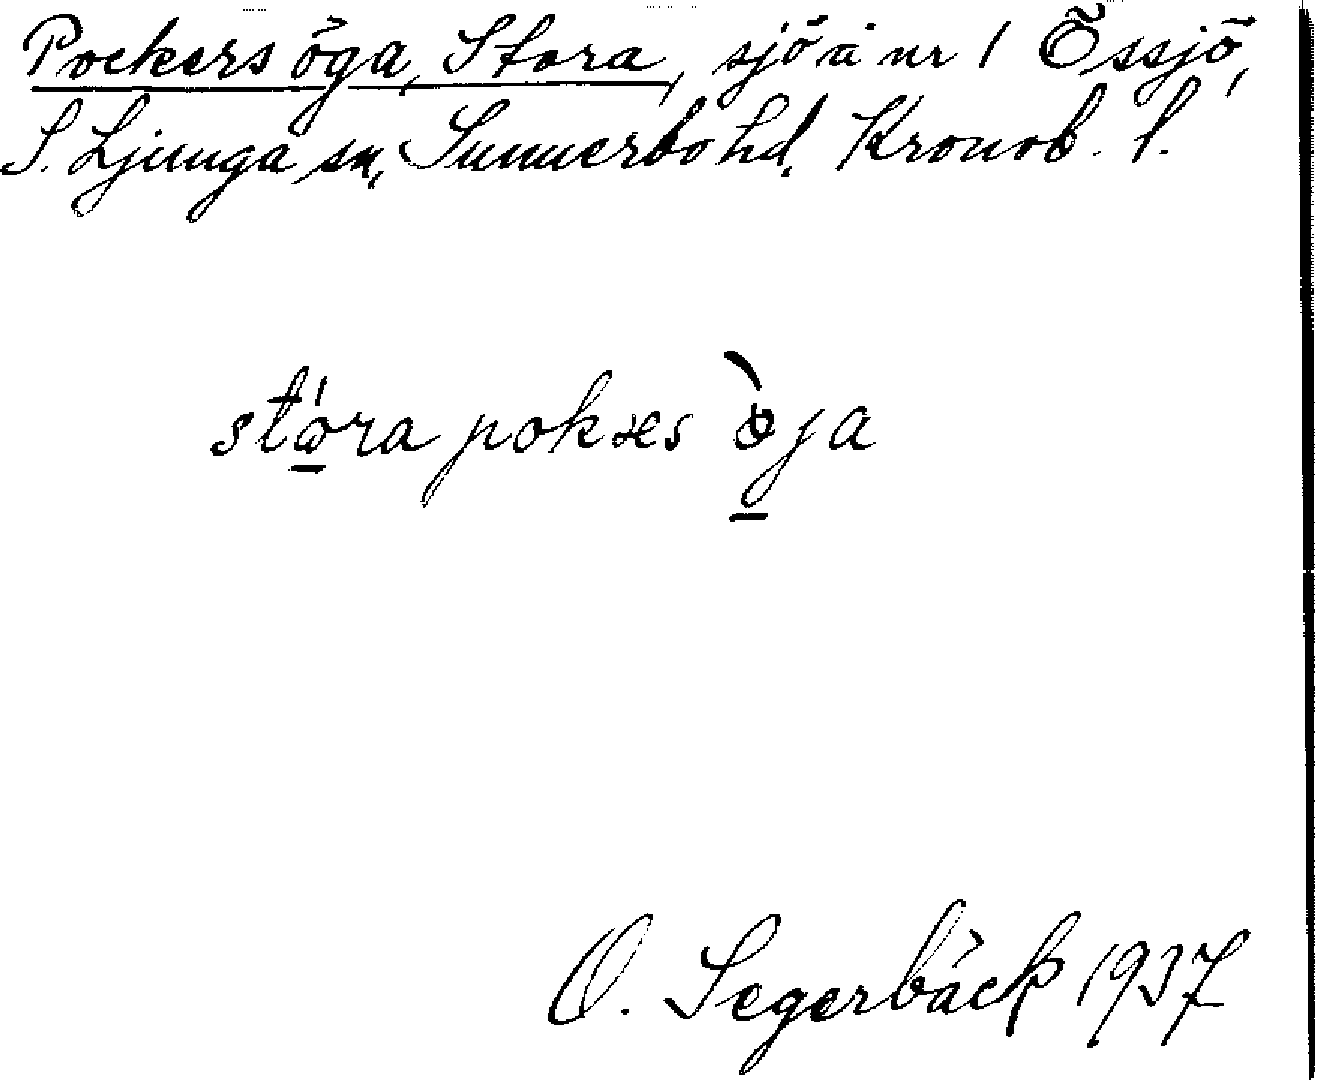 Pockers öga, Stora, sjö å nr 1 Össjö,
S. Ljunga sn, Sunnerbo hd, Kronob. l.
stóra pokæs ò̱ja
O. Segerbäck 1937